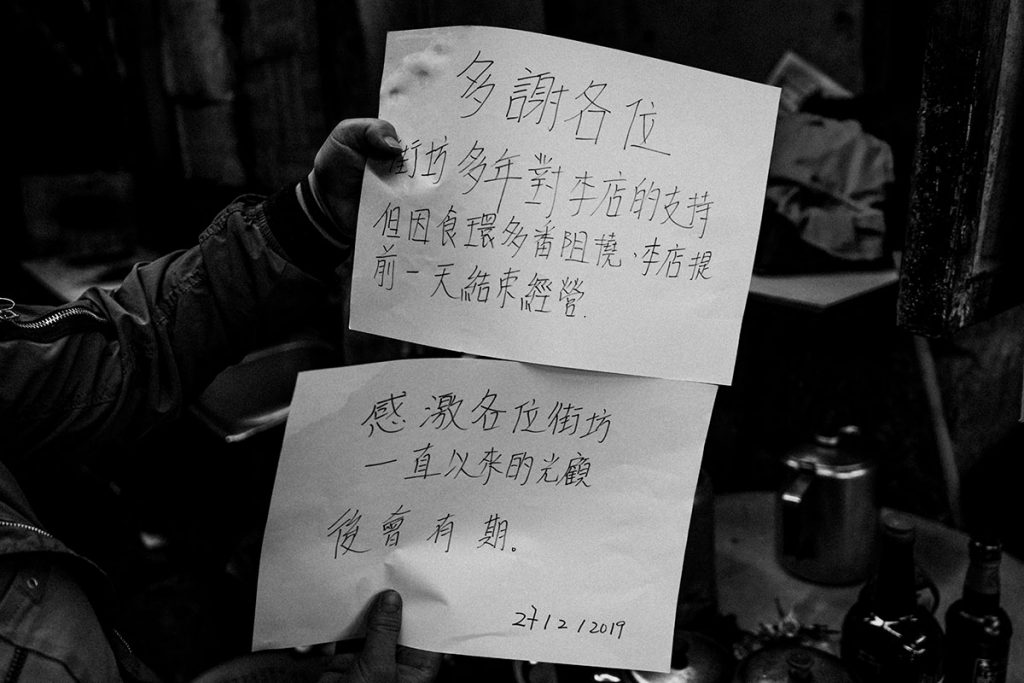 多謝各位
街坊多年對本店的支持
但因食環多番阻撓、本店提
前一天結束經營.
感激各位街坊
一直以來的光顧
後會有期。
27/12/2019